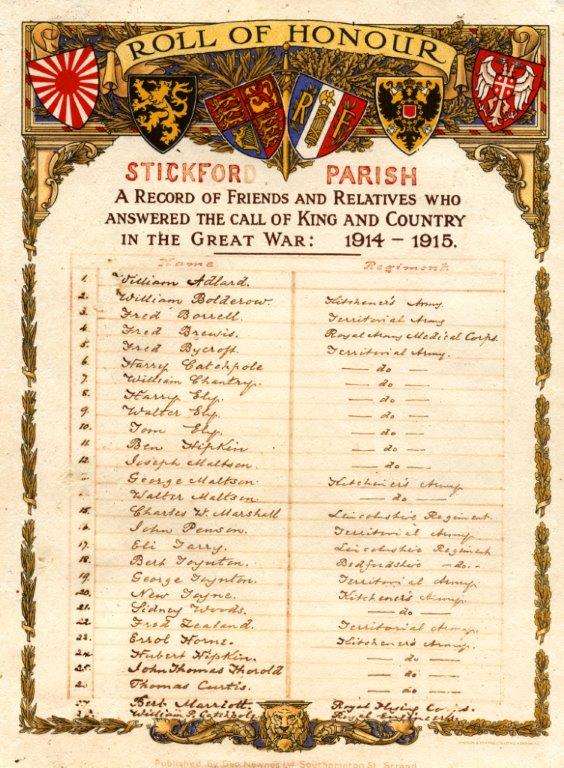 ROLL OF HONOUR
R F
STICKFORD PARISH
A RECORD OF FRIENDS AND RELATIVES WHO
ANSWERED THE CALL OF KING AND COUNTRY
IN THE GREAT WAR: 1914 – 1915.
Name Regiment
1. William Adlard.
2. William Bolderow. Kitchener's Army.
3 Fred Borrell. Territorial Army
4 Fred Brewis. Royal Army Medical Corps.
5 Fred Bycroft. Territorial Army.
6 Harry Catchpole — do —
7 William Chantry. — do —
8 Harry Ely. — do —
9. Walter Ely. — do —
10. Tom Ely. — do —
11. Ben Hipkin — do —
12 Joseph Maltson. — do —
George Maltson. Kitchener's Army
Walter Maltson — do —
15. Charles W. Marshall Lincolnshire Regiment
John Penson. Territorial Army
17. Eli Tarry. Lincolnshire Regiment
18. Bert Toynton. Bedfordshire — do. -
19. George Toynton. Territorial Army.
20. New Toyne. Kitchener's Army.
21. Sidney Woods. — do —
22 Fred Zealand. Territorial Army.
23. Errol Horne. Kitchener's Army.
24 Hubert Hipkin. — do —
25. John Thomas Thorold — do —
Thomas Curtis. — do —
Bert Marriott Royal Flying Corps.
William P. Catchpole Royal Engineers
Published by Geo Newnes Ltd Southampton St. Strand